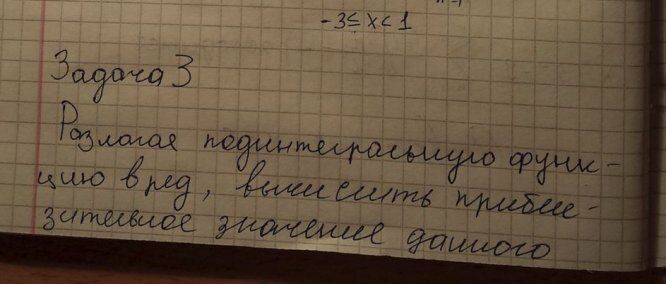 -3 ≤ x < 1
Задача 3
Разлагая подинтегральную функ-
цию в ряд, вычислить прибли-
зительное значение данного